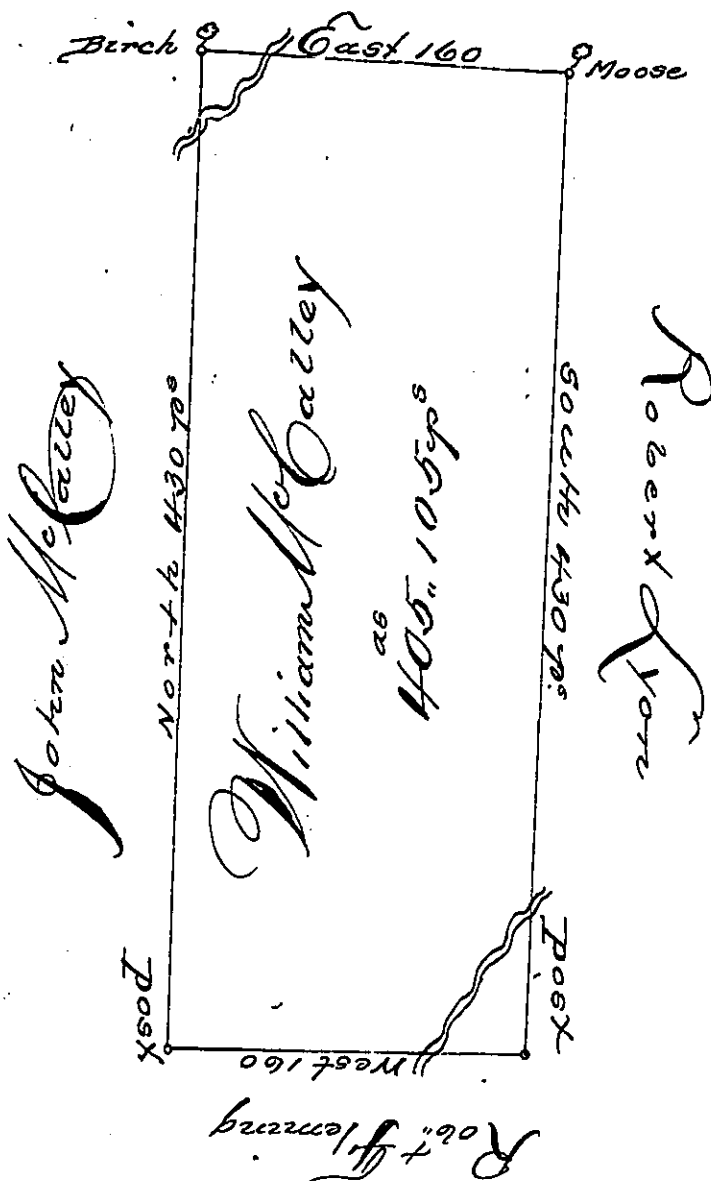 Birch
East 160
Moose
John McCalley
North 430 ps
William McCalley
as
405,, 105 ps
South 430 ps
Robert Lyon
Post
Post
West 160
Robt,, Fleming